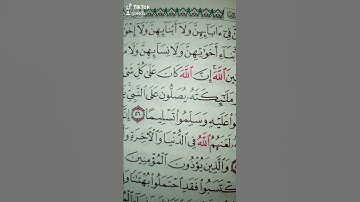 TikTok
فِىٓ ءَابَآئِهِنَّ وَلَآ أَبْنَآئِهِنَّ وَلَآ
أَخَوَٰتِهِنَّ وَلَا نِسَآئِهِنَّ وَلَا
ٱللَّهَ إِنَّ ٱللَّهَ كَانَ عَلَىٰ كُلِّ
مَلَـٰٓئِكَتَهُۥ يُصَلُّونَ عَلَى ٱلنَّبِىِّ
عَلَيْهِ وَسَلِّمُوا۟ تَسْلِيمًا ٥٦
لَعَنَهُمُ ٱللَّهُ فِى ٱلدُّنْيَا وَٱلْـَٔاخِرَةِ
وَٱلَّذِينَ يُؤْذُونَ ٱلْمُؤْمِنِينَ
ٱكْتَسَبُوا۟ فَقَدِ ٱحْتَمَلُوا۟ بُهْتَـٰنًا